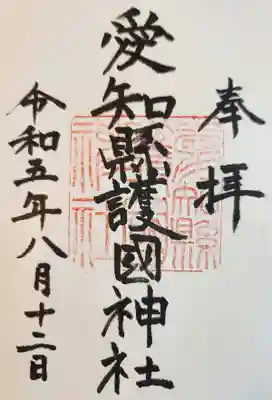 奉拝
愛知縣護國神社
令和五年八月十二日